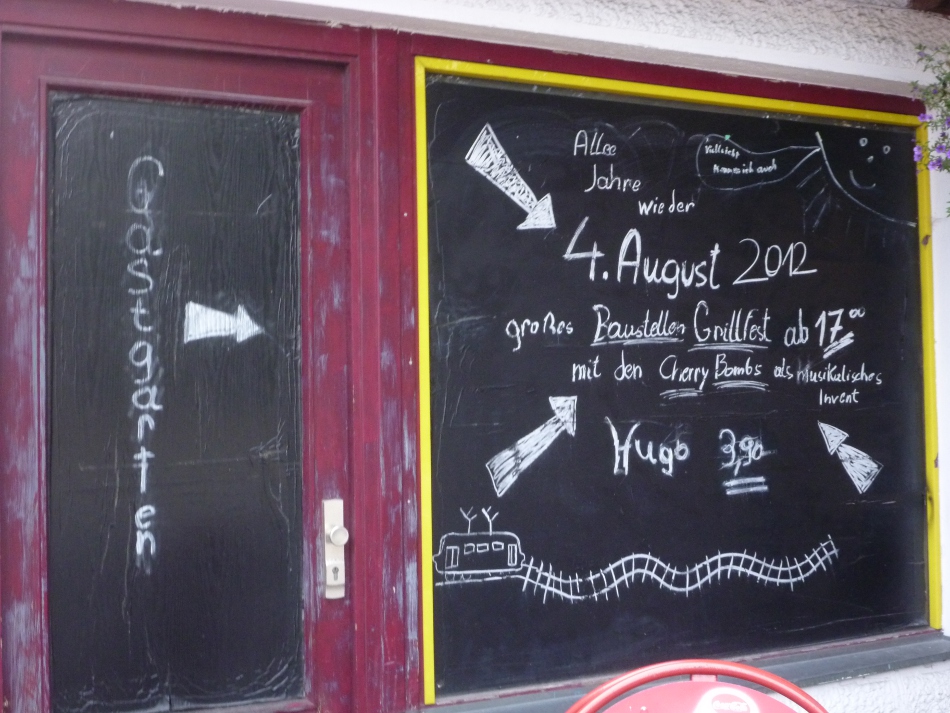 Gastgarten
Alle
Jahre
wieder
auch
4. August 2012
großes Baustellen Grillfest ab 17⁰⁰
mit den Cherry Bombs als musikalisches
Invent
Hugo 3,90
Coca-Cola